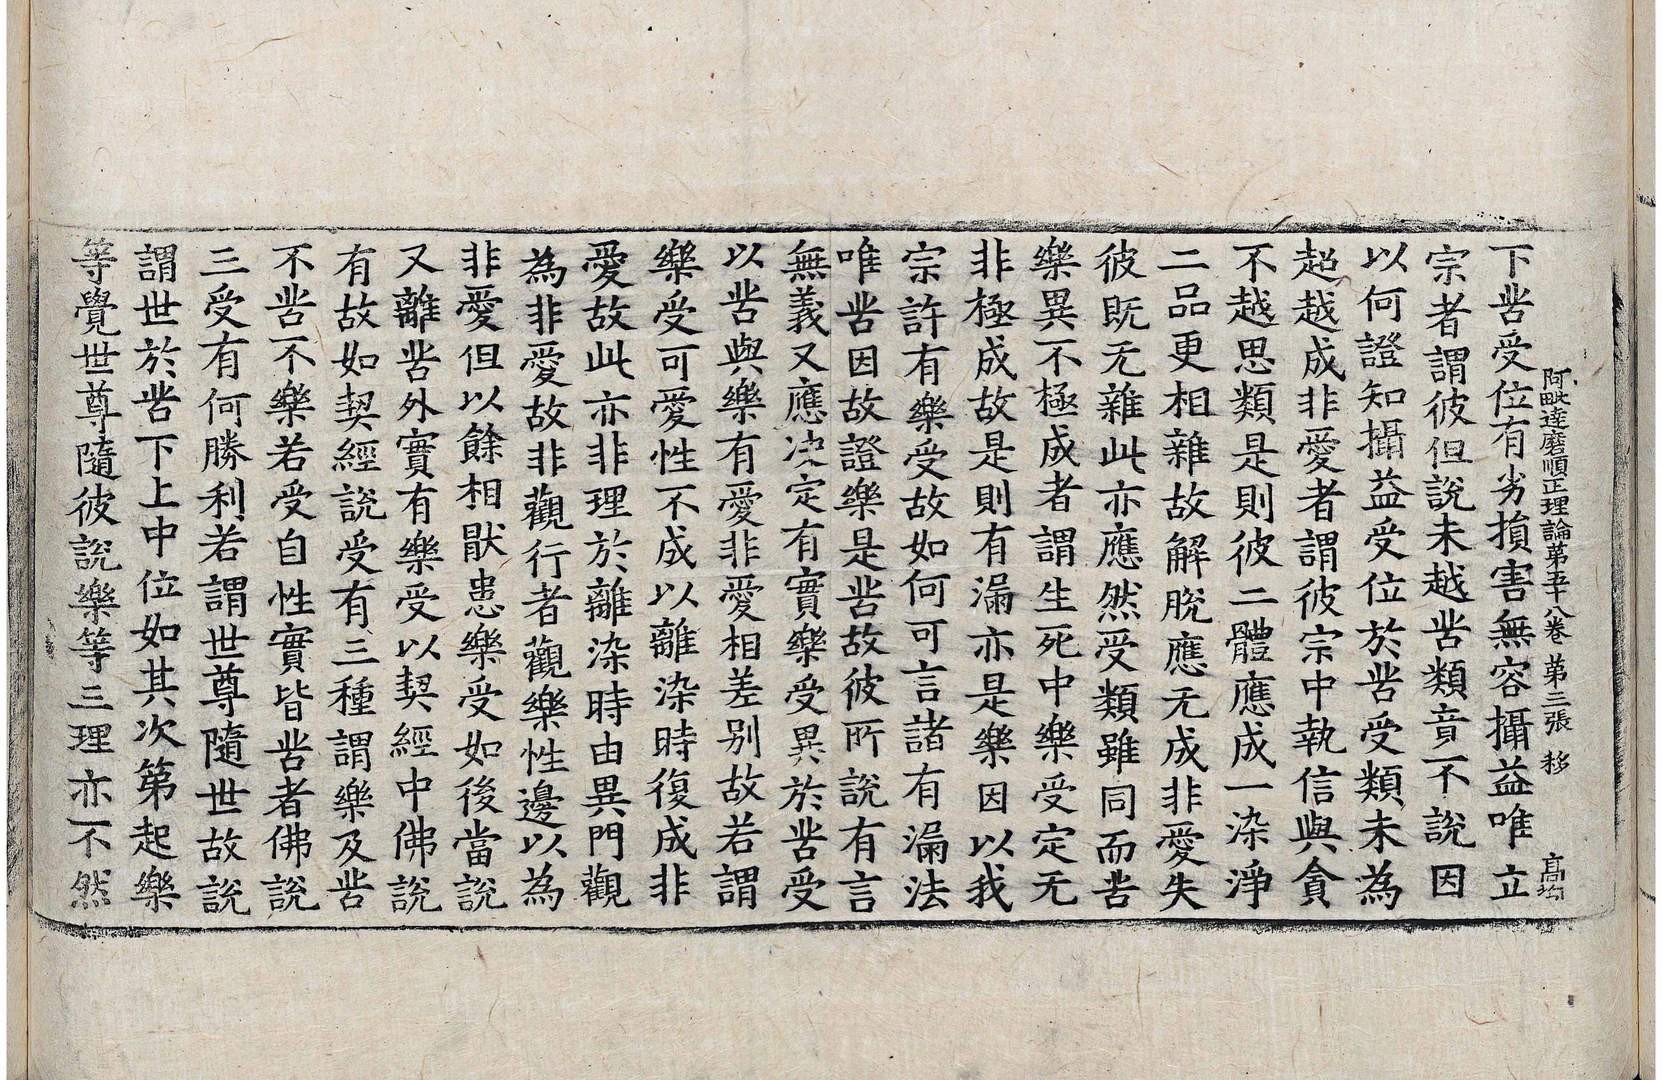 阿毗達磨順正理論第五十八卷 第三張 移 高均
下苦受位有劣損害無容攝益唯立
宗者謂彼但說未越苦類音不說因
以何證知攝益受位於苦受類未為
超越成非愛者謂彼宗中執信與貪
不越思類是則彼二體應成一染淨
二品更相雜故解脫應无成非愛失
彼既无雜此亦應然受類雖同而苦
樂異不極成者謂生死中樂受定无
非極成故是則有漏亦是樂因以我
宗許有樂受故如何可言諸有漏法
唯苦因故證樂是苦故彼所說有言
無義又應決定有實樂受異於苦受
以苦與樂有愛非愛相差別故若謂
樂受可愛性不成以離染時復成非
愛故此亦非理於離染時由異門觀
為非愛故非觀行者觀樂性邊以為
非愛但以餘相猒患樂受如後當說
又離苦外實有樂受以契經中佛說
有故如契經說受有三種謂樂及苦
不苦不樂若受自性實皆苦者佛說
三受有何勝利若謂世尊隨世故說
謂世於苦下上中位如其次第起樂
等覺世尊隨彼說樂等三理亦不然